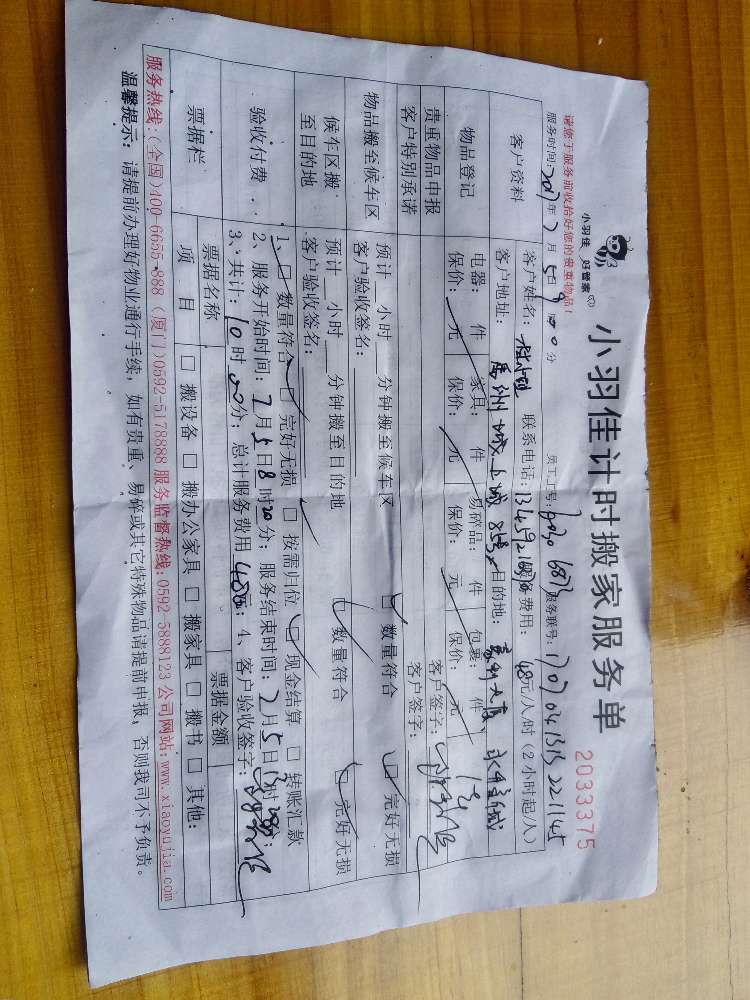 小羽佳 好管家
小羽佳计时搬家服务单
2033375
请您于服务前收拾好您的贵重物品！
服务时间：2017年7月5日9时00分 员工工号： 服务联号：
客户资料
客户姓名： 联系电话： 服务费用：48元/人/时（2小时起/人）
客户地址： 目的地：
物品登记
电器： 件 家具： 件 易碎品： 件 包裹： 件
保价： 元 保价： 元 保价： 元 保价： 元
贵重物品申报
客户签字：
客户特别承诺
客户签字：
物品搬至候车区
预计 小时 分钟搬至候车区 □ 数量符合 □ 完好无损
客户验收签名：
候车区搬至目的地
预计 小时 分钟搬至目的地 □ 数量符合 □ 完好无损
客户验收签名：
验收付费
1、□ 数量符合 □ 完好无损 □ 按需归位 □ 现金结算 □ 转账汇款
2、服务开始时间：7月5日8时20分；服务结束时间：7月5日 时 分；
3、共计：10时00分；总计服务费用 元；4、客户验收签字：
票据栏
票据名称 票据金额
项 目 □ 搬设备 □ 搬办公家具 □ 搬家具 □ 搬书 □ 其他：
服务热线：(全国)400-6655-888 (厦门)0592-5178888 服务监督热线：0592-5888123 公司网站：www.xiaoyujia.com
温馨提示： 请提前办理好物业通行手续，如有贵重、易碎或其它特殊物品请提前申报，否则我司不予负责。